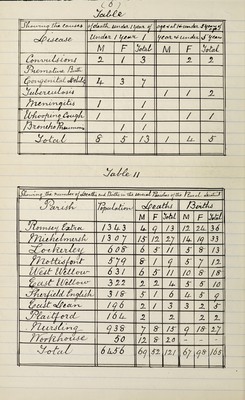 (8)
Table
Showing the causes of death under 1 year of age and 1 & under 5 years of
Disease Under 1 year 1 year & under 5 years
M F Total M F Total
Convulsions 2 1 3 2 2
Premature Birth
Congenital Debility 4 3 7
Tuberculosis 1 1 2
Meningitis 1 1
Whooping Cough 1 1 1 1
Broncho Pneumonia 1 1
Total 8 5 13 1 4 5
Table 11
Showing the number of Deaths and Births in the several Parishes of the Rural District
Parish Population Deaths Births
M F Total M F Total
Romsey Extra 1343 4 9 13 12 24 36
Michelmersh 1307 15 12 27 14 19 33
Lockerley 608 6 5 11 5 8 13
Mottisfont 579 8 1 9 5 7 12
West Wellow 631 6 5 11 10 8 18
East Wellow 322 2 2 4 5 5 10
Sherfield English 318 5 1 6 4 5 9
East Dean 196 2 1 3 3 2 5
Plaitford 164 2 2 2 2
Nursling 938 7 8 15 9 18 27
Workhouse 50 12 8 20 - - -
Total 6456 69 52 121 67 98 165